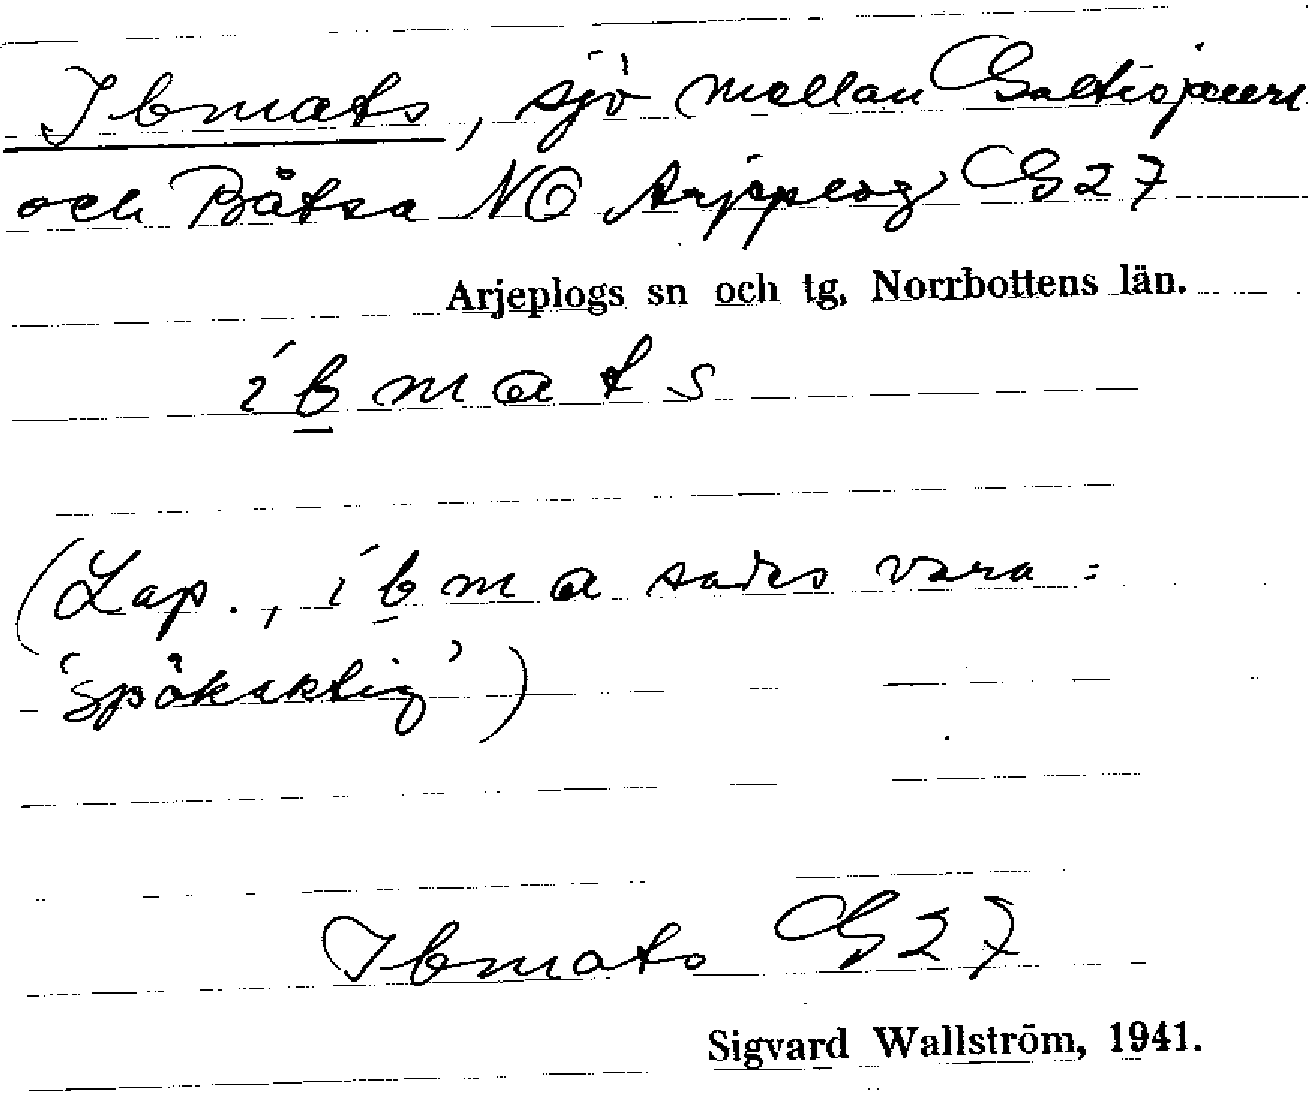 Ibmats, sjö mellan Galtisjaure
och Båtsa NO Arjeplog G27
Arjeplogs sn och tg, Norrbottens län.
íb̲mats
(Lap., íb̲ma sades vara:
'spökaktig')
Ibmats G27
Sigvard Wallström, 1941.